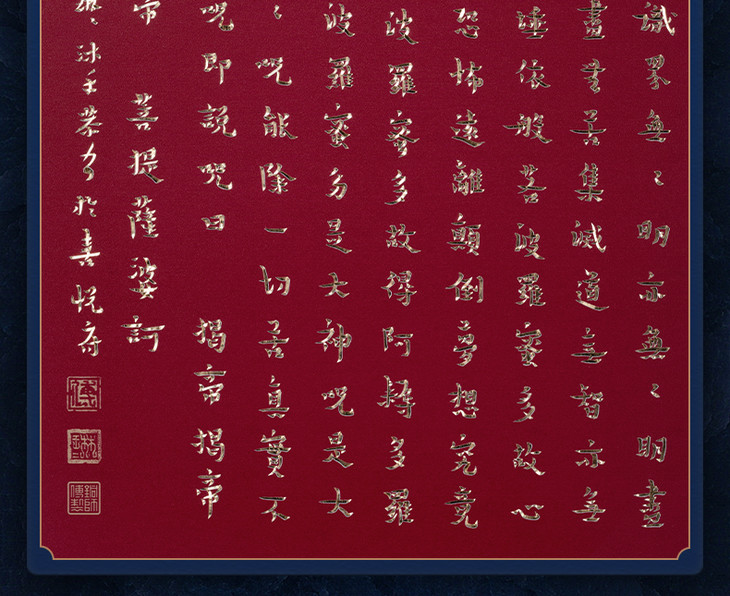 識界無〻明亦無〻明盡
盡無苦集滅道無智亦無
埵依般若波羅蜜多故心
恐怖遠離顛倒夢想究竟
波羅蜜多故得阿耨多羅
波羅蜜多是大神呪是大
〻呪能除一切苦真實不
呪即說呪曰 揭帝揭帝
帝 菩提薩婆訶
沐手恭書於喜悅齋
銅師傅製